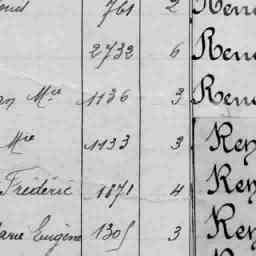 761 2 Ren
2732 6 Ren
Mce 1136 3 Ren
Mie 1133 3 Rey
Frédéric 1871 4 Rey
Marie Eugène 1305 3 Rey